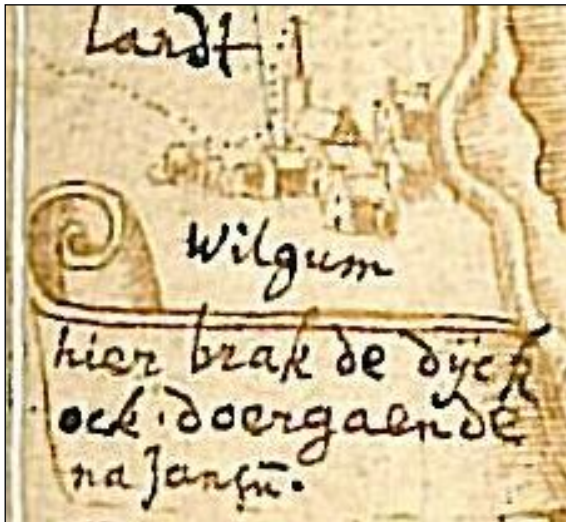 landt
Wilgum
hier brak de dÿck
ock doergaende
na Jansū.